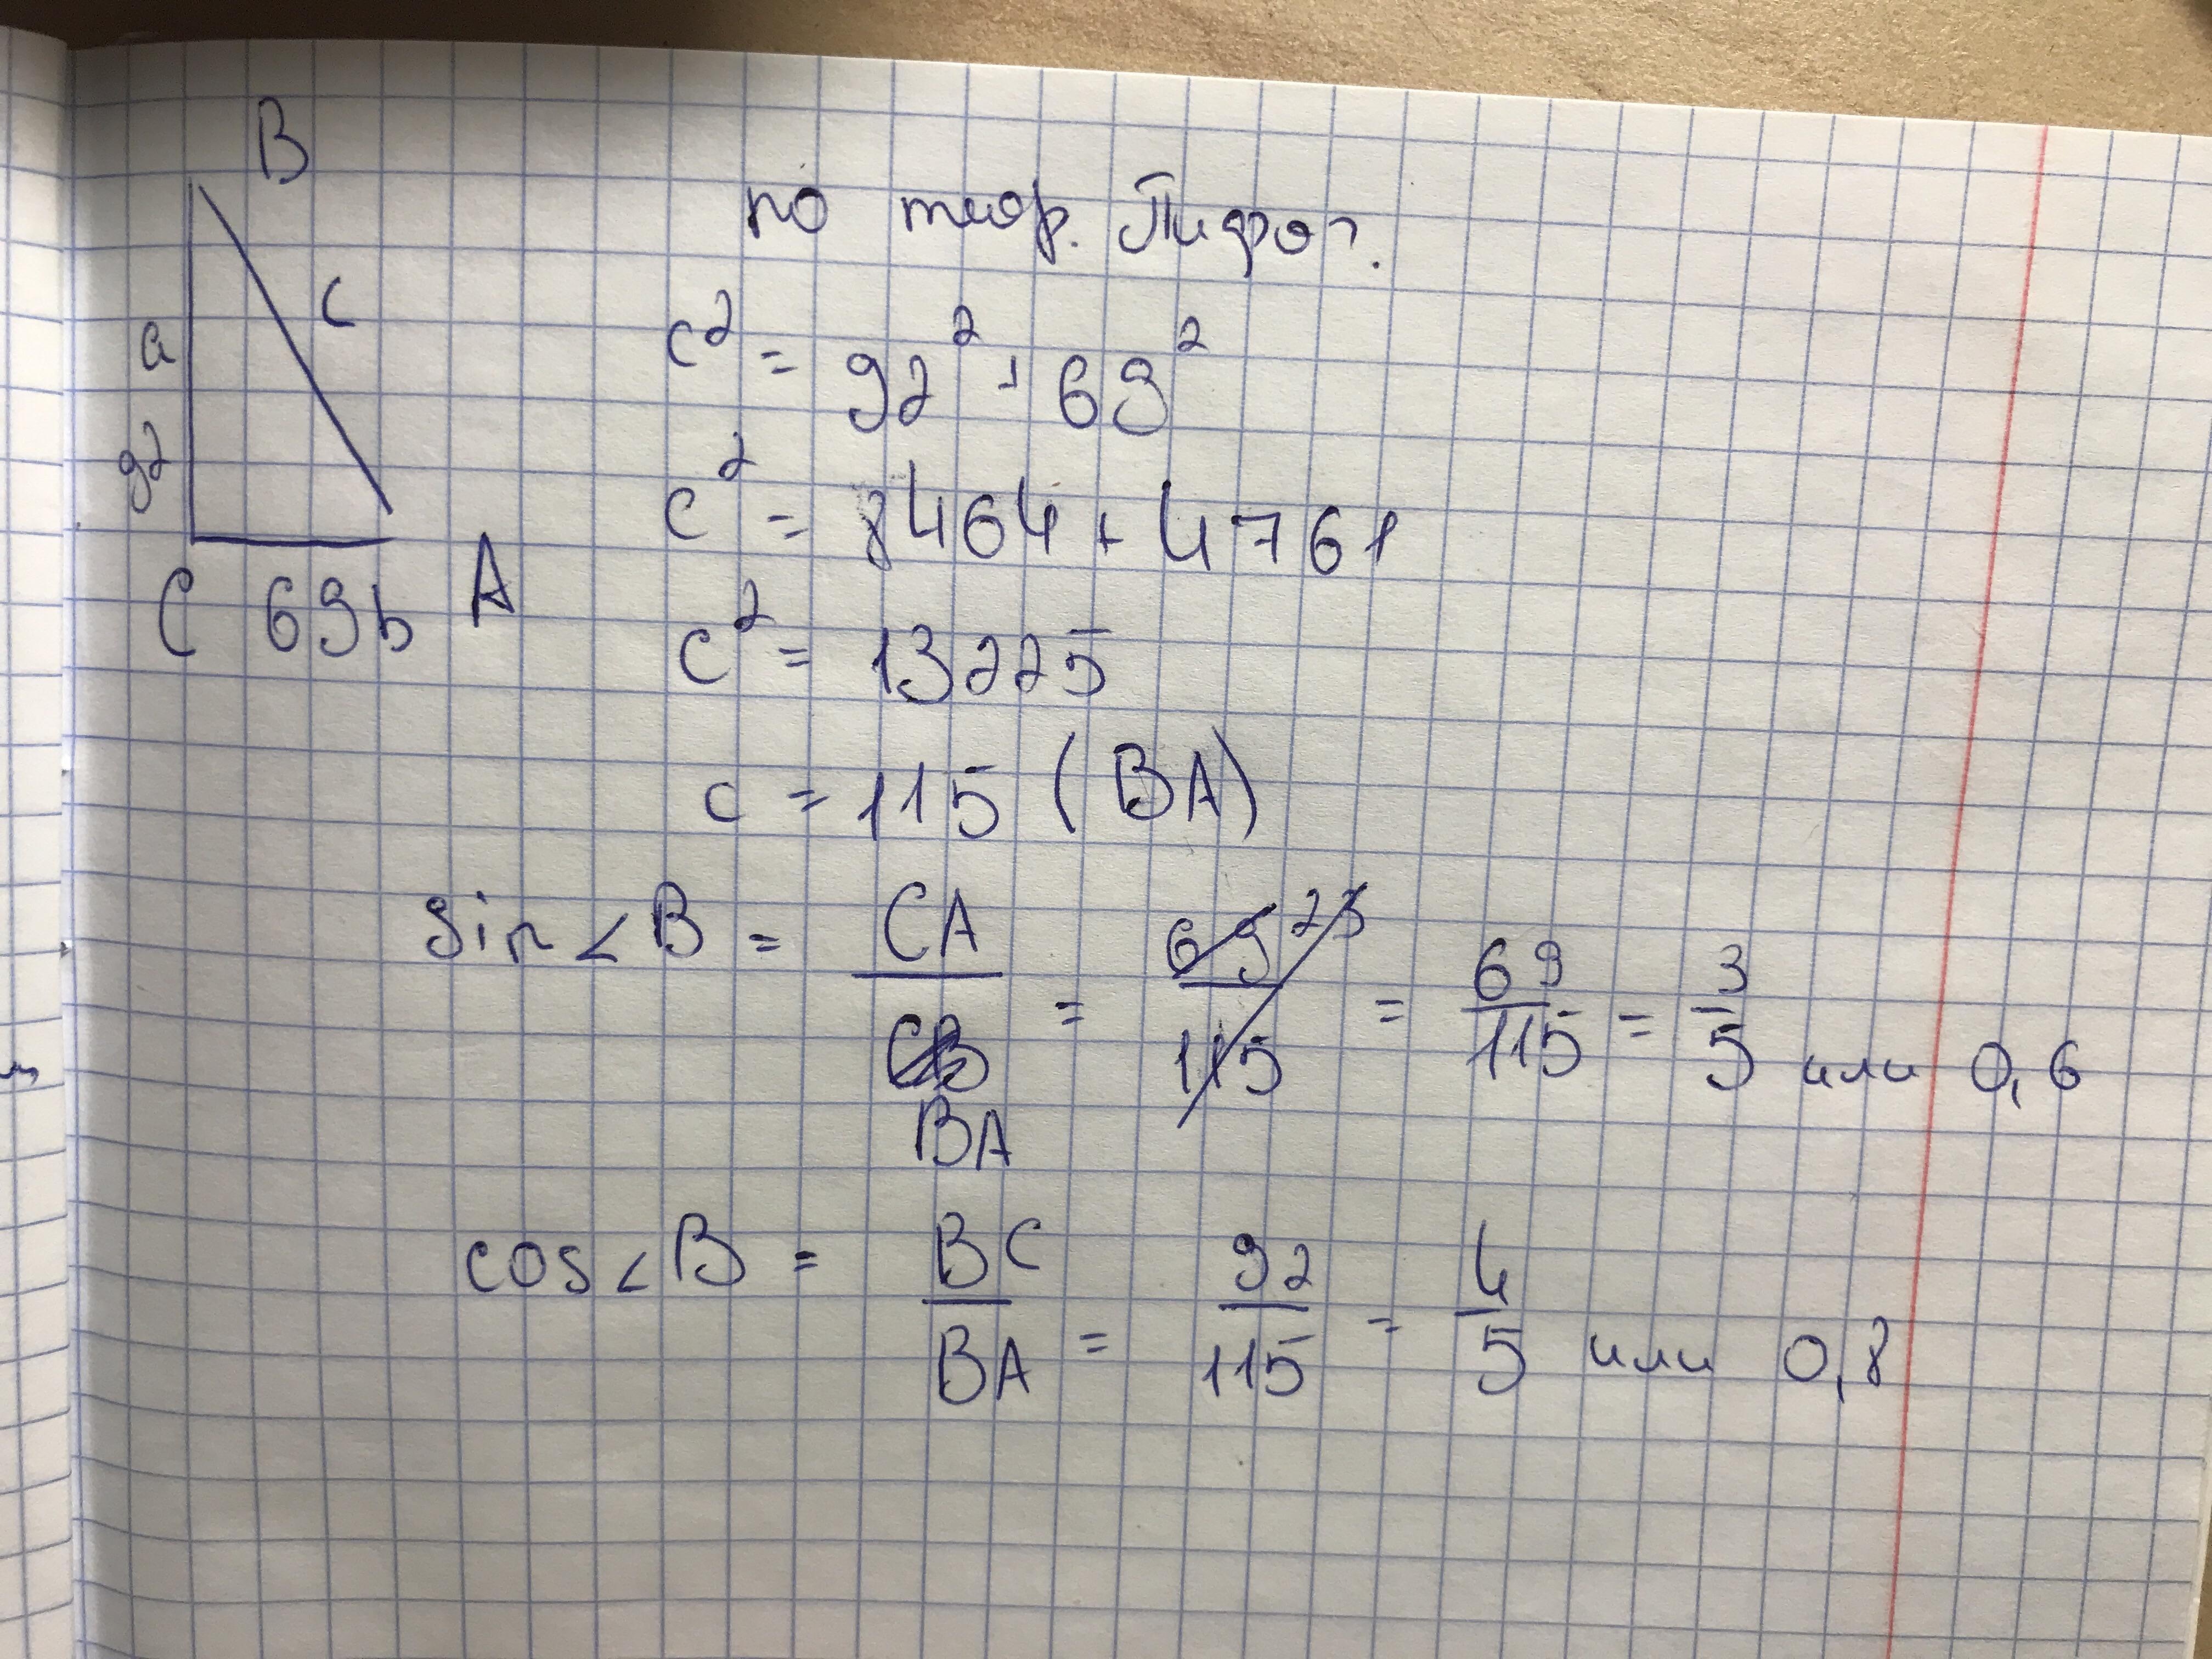 B
c
a
92
C 69 b A
по теор. Пифаг.
c² = 92² + 69²
c² = 8464 + 4761
c² = 13225
c = 115 (BA)
sin∠B = CA / BA = 69 23 / 115 = 69/115 = 3/5 или 0,6
cos∠B = BC / BA = 92/115 = 4/5 или 0,8